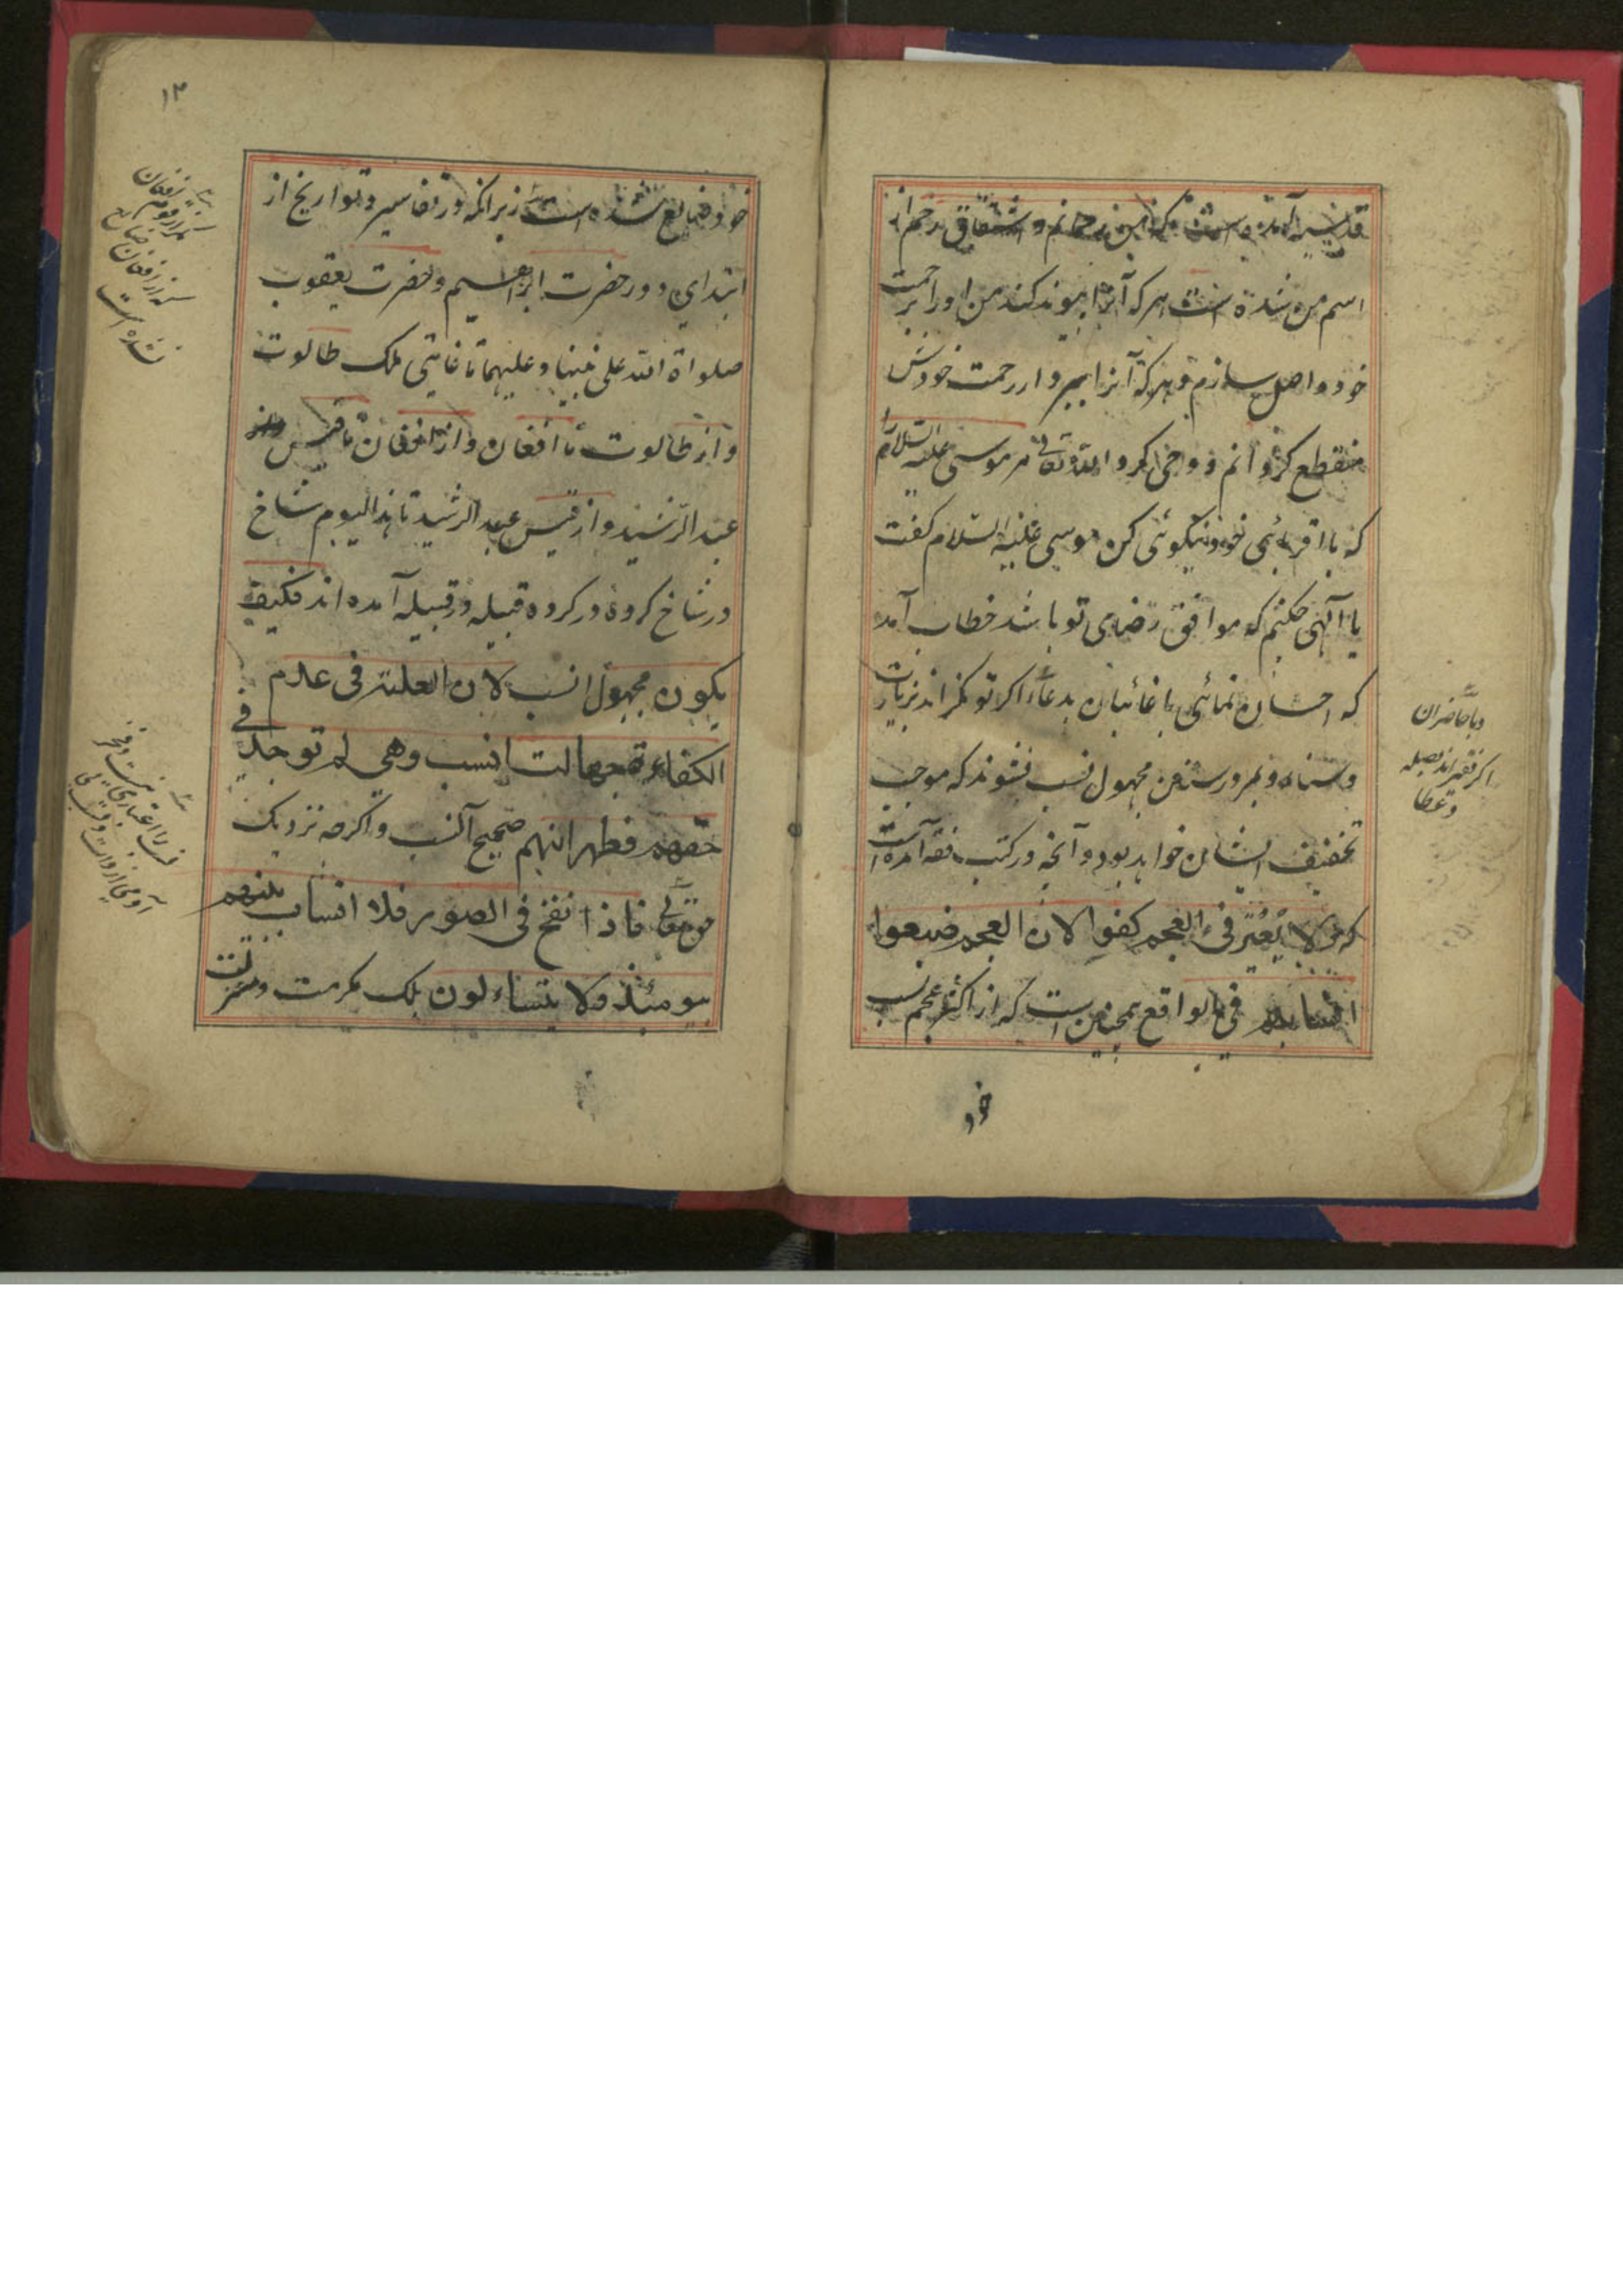 قدسیه آمده است که من رحمانم و اشتقاق رحم از
اسم من شده است هر که آنرا پیوند کند من او را برحمت
خود واصل سازم و هر که آنرا ببرد از رحمت خودش
منقطع گردانم و وحی کرد الله تعالی مر موسی علیه السلام را
که با اقربائی خود نیکوئی کن موسی علیه السلام گفت
یا الهی چکنم که موافق رضای تو باشد خطاب آمد
که احسان نمائی با غائبان بدعاء اگر تونکراند بزیارت
و باحاضران
اگر فقیراند بصله
و عطا
مجهول نسب نشوند که موجب
تخفیف ایشان خواهد بود و آنچه در کتب فقه آمده است
که لا یعتبر فی العجم کفوا لان العجم ضیعوا
انسابهم فی الواقع همچنین است که از اکثر عجم نسب
خود
۱۳
خود ضایع شده است زیرانکه در تفاسیر و تواریخ از
ابتدای دور حضرت ابراهیم و حضرت یعقوب
صلواة الله علی نبینا و علیهما تا غایتی ملک طالوت
و از طالوت تا افغان و از افغان تا قیس
عبد الرشید و از قیس عبد الرشید تا هذا الیوم شاخ
در شاخ کروه در کروه قبیله در قبیله آمده اند فکیف
یکون مجهول النسب لان العلته فی عدم
الکفاءة جهالت النسب وهی لم توجد فی
حقهم فظهر انهم صحیح النسب و اگرچه نزدیک
حق تعالی فاذا نفخ فی الصور فلا انساب بینهم
یومئذ ولا یتساءلون بلک مکرمت و منزلت
مگر از قوم افغان
که از افغان ضایع
نشده است